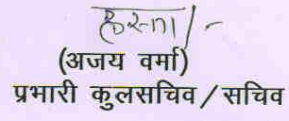 हस्ता/-
(अजय वर्मा)
प्रभारी कुलसचिव/सचिव